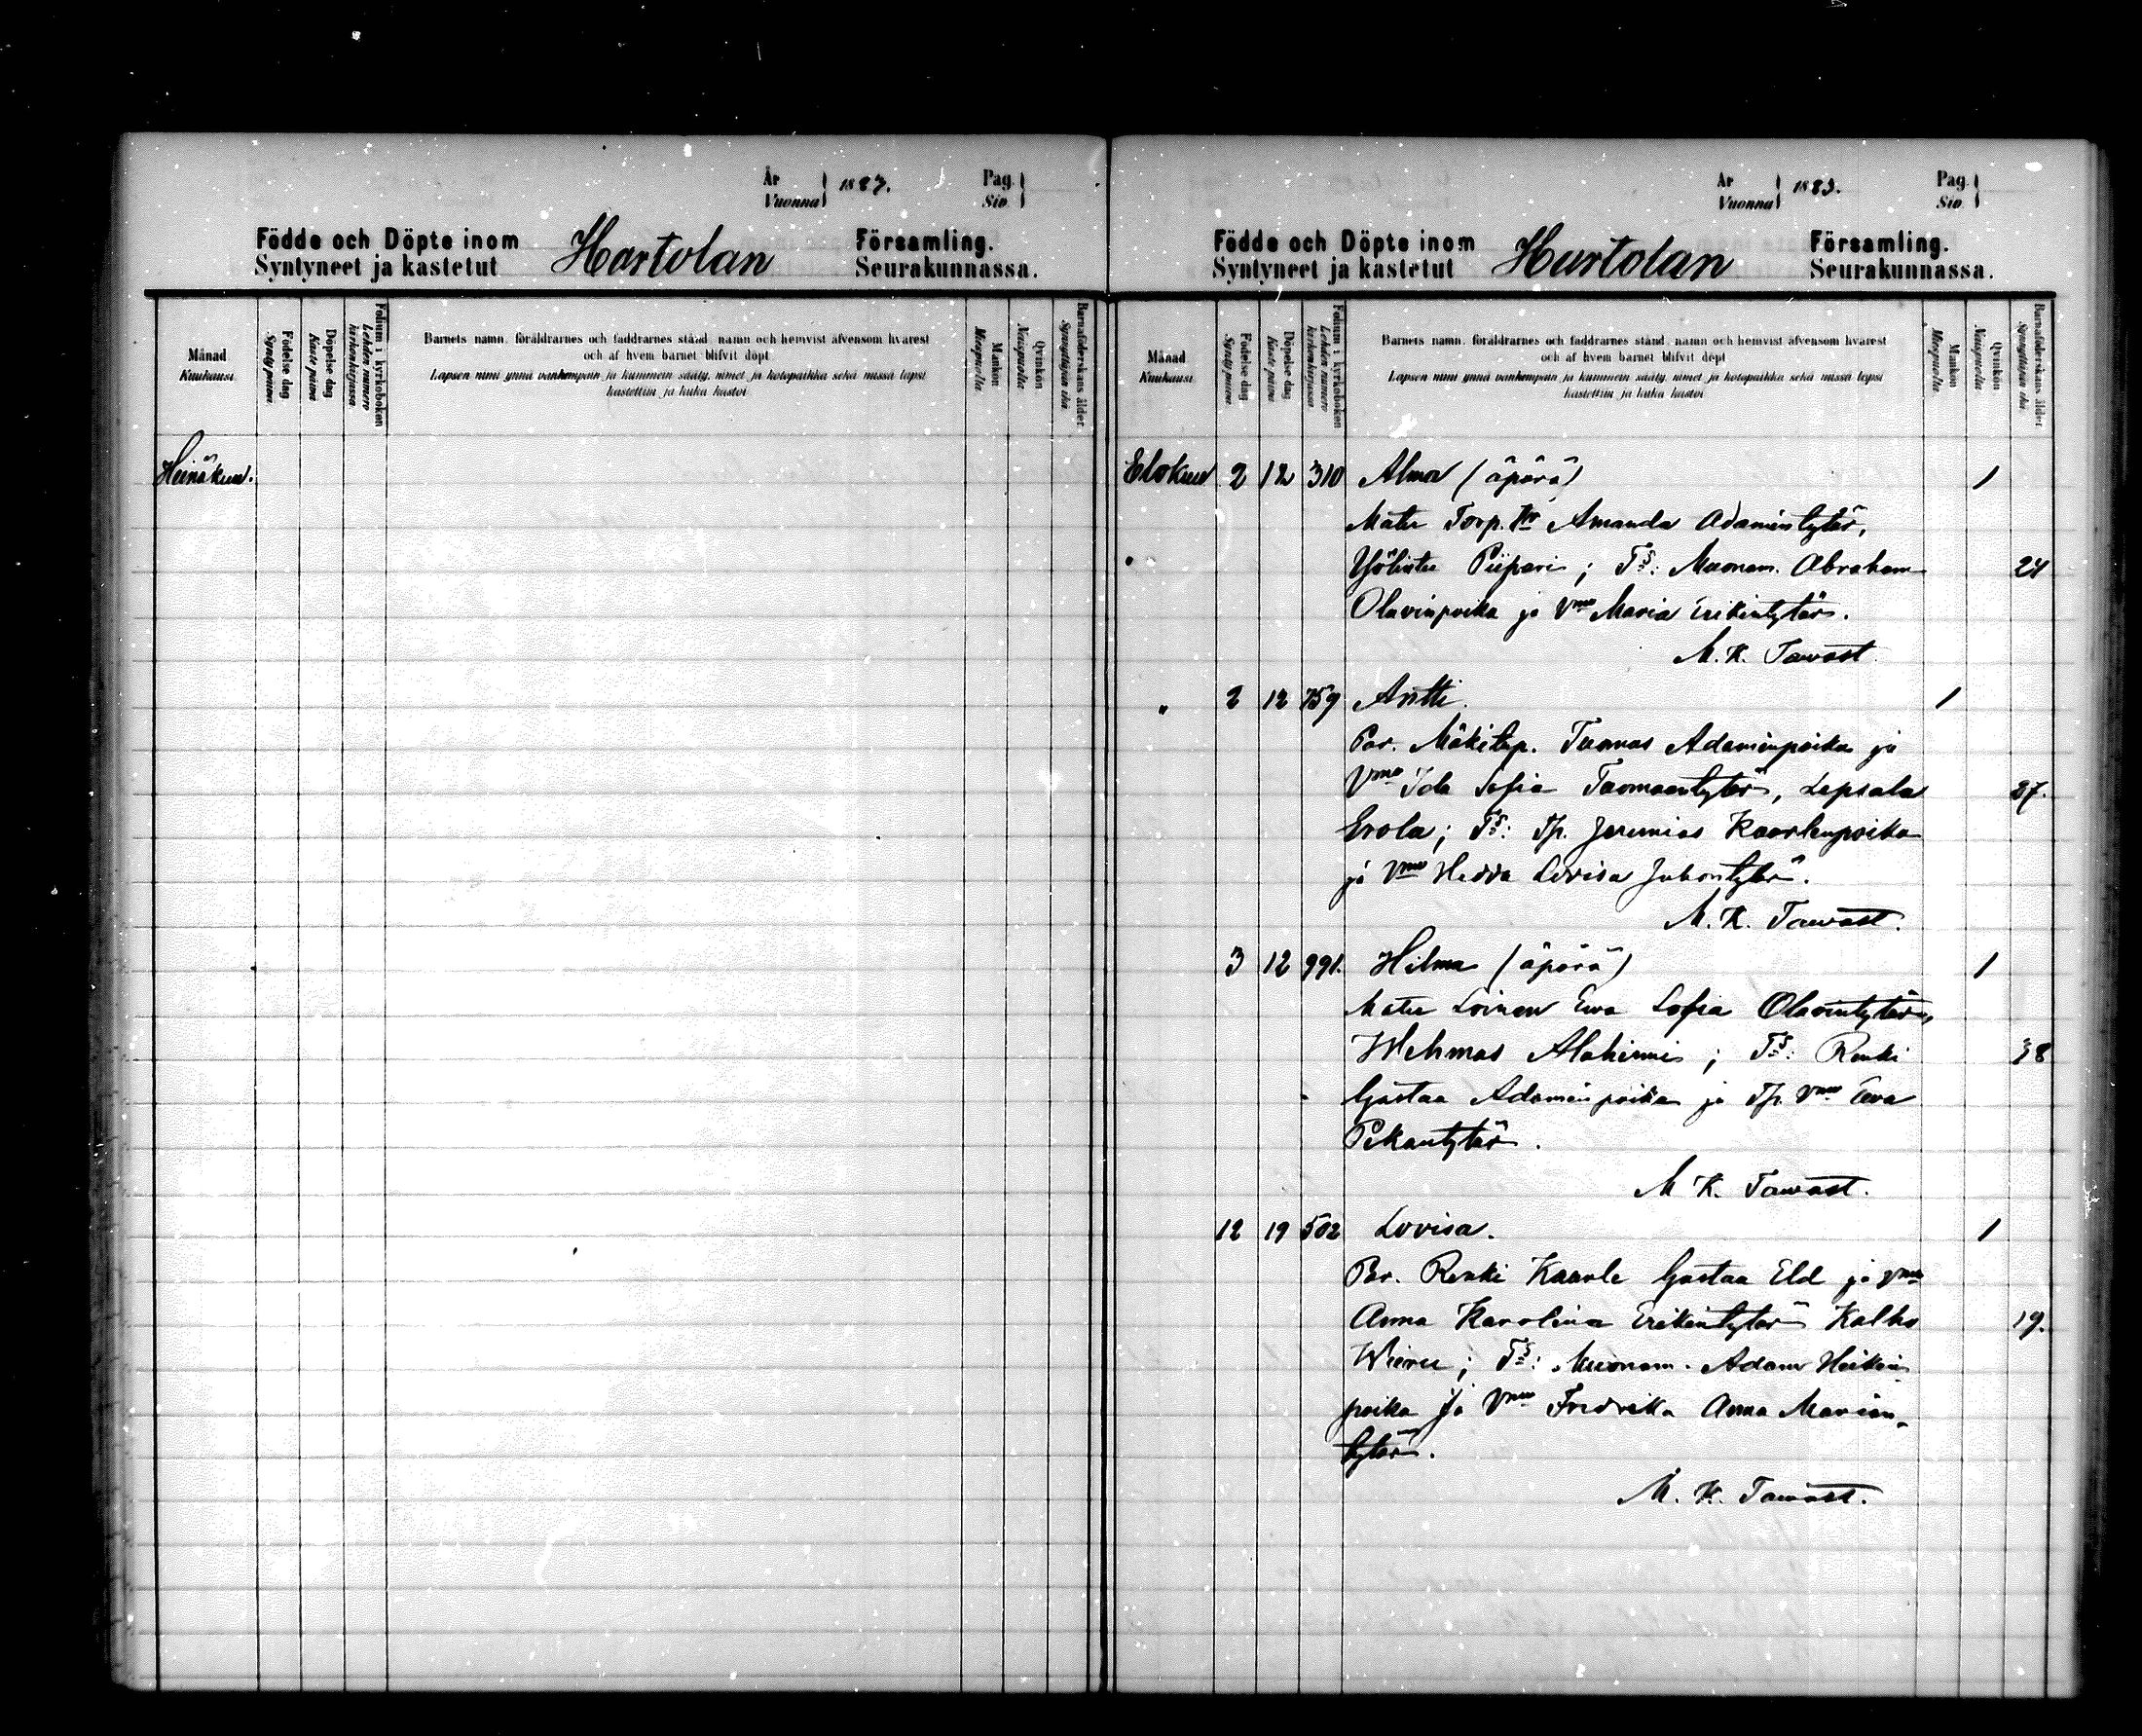 År
Vuonna 1883.
Pag.
Siv.
Födde och Döpte inom
Syntyneet ja kastetut
Hartolan
Församling.
Seurakunnassa.
Månad
Kuukausi
Födelse dag
Synty päivä
Döpelse dag
Kaste päivä
Folium i kyrkoboken
Lehden numero kirkonkirjassa
Barnets namn, föräldrarnes och faddrarnes stånd, namn och hemvist äfvensom hvarest
och af hvem barnet blifvit döpt
Lapsen nimi ynnä vanhempain ja kummein sääty, nimet ja kotopaikka sekä missä lapsi
kastettiin ja kuka kastoi
Mankön
Miespuolia
Qvinkön
Naispuolia
Barnaföderskans ålder
Synnyttäjän ikä
Heinäkuu.
År
Vuonna 1883.
Pag.
Siv.
Födde och Döpte inom
Syntyneet ja kastetut
Hartolan
Församling.
Seurakunnassa.
Månad
Kuukausi
Födelse dag
Synty päivä
Döpelse dag
Kaste päivä
Folium i kyrkoboken
Lehden numero kirkonkirjassa
Barnets namn, föräldrarnes och faddrarnes stånd, namn och hemvist äfvensom hvarest
och af hvem barnet blifvit döpt
Lapsen nimi ynnä vanhempain ja kummein sääty, nimet ja kotopaikka sekä missä lapsi
kastettiin ja kuka kastoi
Mankön
Miespuolia
Qvinkön
Naispuolia
Barnaföderskans ålder
Synnyttäjän ikä
Elokuu 2 12 310 Alma (äpärä) 1
Mater Torp. Amanda Adamintytär,
Piipari; Ts: Muonam. Abraham 24
Olavinpoika ja Vmo Maria Erikintytär.
M. K. Tawast
" 2 12 759 Antti. 1
Par. Mäkitup. Tuomas Adaminpoika ja
Vmo Ida Sofia Tuomaantytär, Lepsala 27.
Erola; Ts: Tp. Jeremias Kaarlenpoika
ja Vmo Hedda Lovisa Juhontytär.
M. K. Tawast.
3 12 991. Hilma (äpärä) 1
Mater Loinen Ewa Sofia Olavintytär,
Wehmas Alahinmi; Ts: Renki 38
Gustaa Adaminpoika ja Tp. Vmo Ewa
Pekantytär.
M K. Tawast.
12 19 502 Lovisa. 1
Par. Renki Kaarle Gustaa Eld ja Vmo
Anna Karolina Erikintytär Kalho 19.
Wieru; Ts: Muonam. Adam Heikin
poika ja Vmo Fredrika Anna Marian-
tytär.
M. K. Tawast.